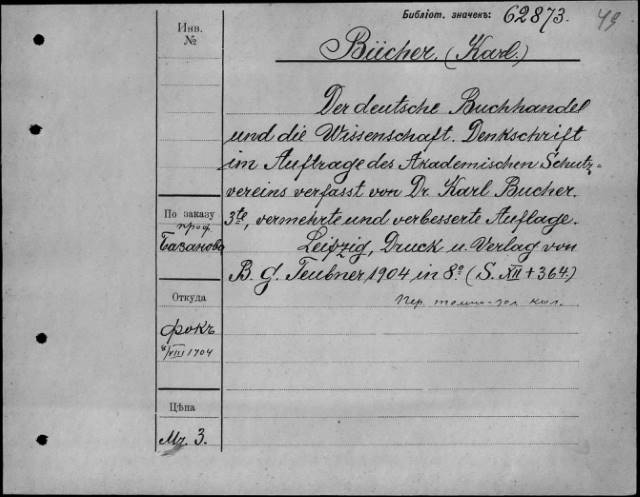 Библіот. значекъ: 62873.
49
Инв.
№
Bücher, (Karl.)
Der deutsche Buchhandel
und die Wissenschaft. Denkschrift
im Auftrage des Akademischen Schutz-
vereins verfasst von Dr. Karl Bucher.
По заказу
проф.
Базанова
3te, vermehrte und verbesserte Auflage.
Leipzig, Druck u. Verlag von
B. G. Teubner 1904 in 8.° (S. XII + 364)
Откуда
Пер.
фокъ
VIII 1904
Цѣна
Mr. 3.